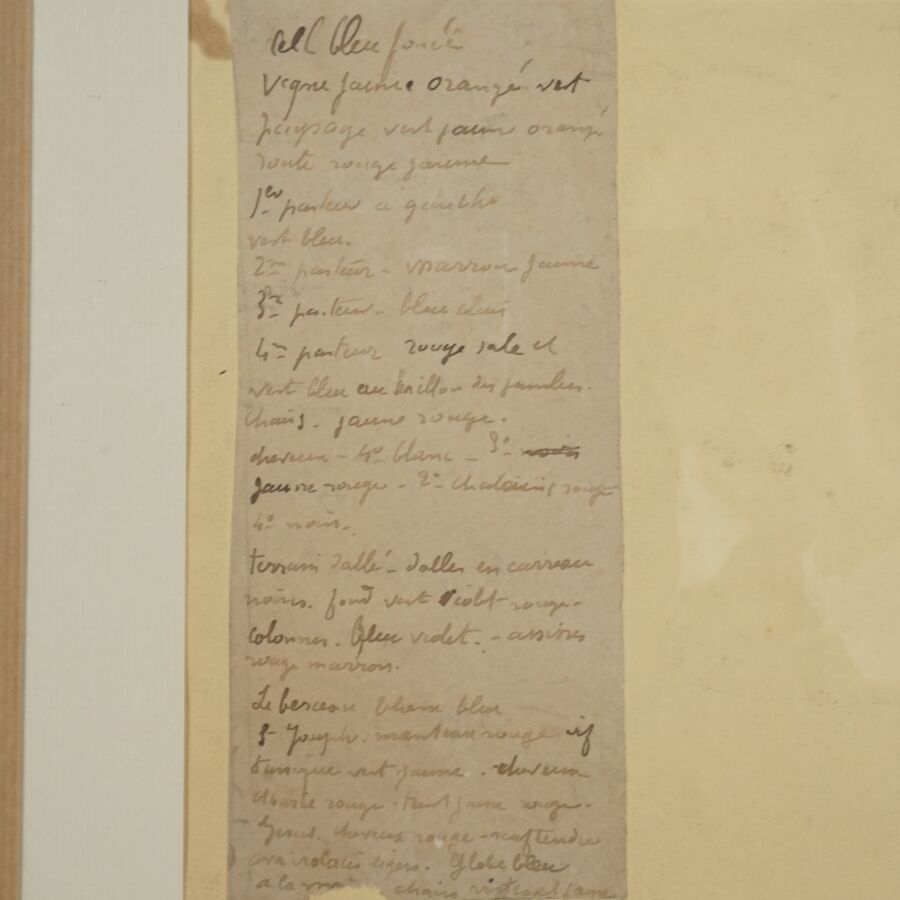 bleu foncé
vigne jaune orangé vert
paysage vert jaune orangé
route rouge jaune
1er pasteur à gauche
vert bleu.
2me pasteur - marron jaune
3me pasteur - bleu clair
4me pasteur rouge sale et
vert bleu au des jambes.
chairs. jaune rouge.
cheveux - 4o blanc - 3o - noir
jaune rouge - 2o chatains rouge
4o noir.
terrain dallé - dalles en carreau
noires. fond vert violet rouge -
colonnes. bleu violet. - assises
rouge marron.
Le berceau blanc bleu
St Joseph. manteau rouge vif
tunique vert jaune. cheveux
et barbe rouge - teint jaune rouge.
Jesus. cheveux rouge -
legers. Globe bleu
a la main chairs